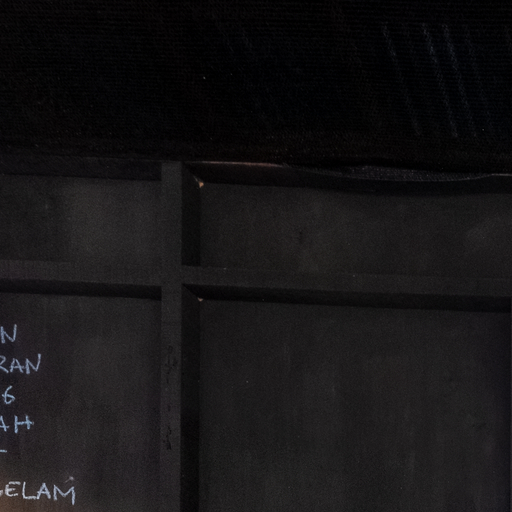 N
RAN
6
AH
GELAM